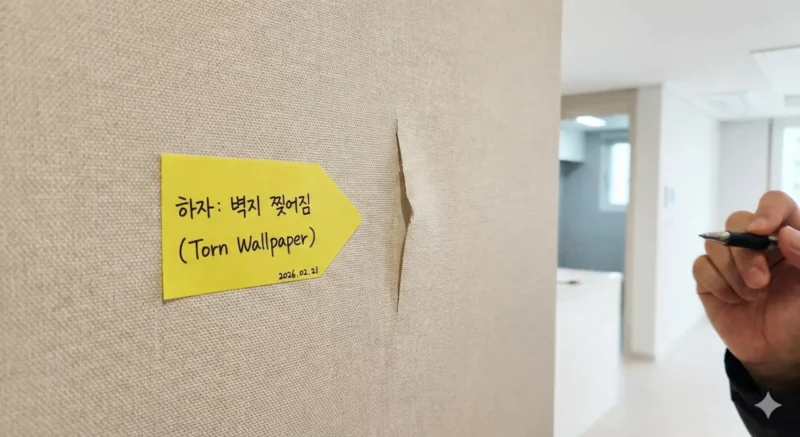 하자: 벽지 찢어짐
(Torn Wallpaper)
2026.02.21